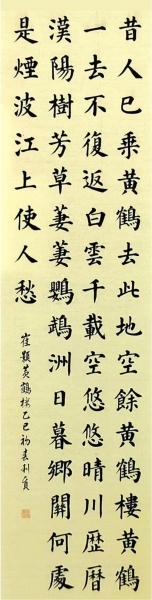 昔人已乘黃鶴去此地空餘黃鶴樓黃鶴
一去不復返白雲千載空悠悠晴川歷曆
漢陽樹芳草萋萋鸚鵡洲日暮鄉關何處
是煙波江上使人愁
崔顥黃鶴樓乙巳初春